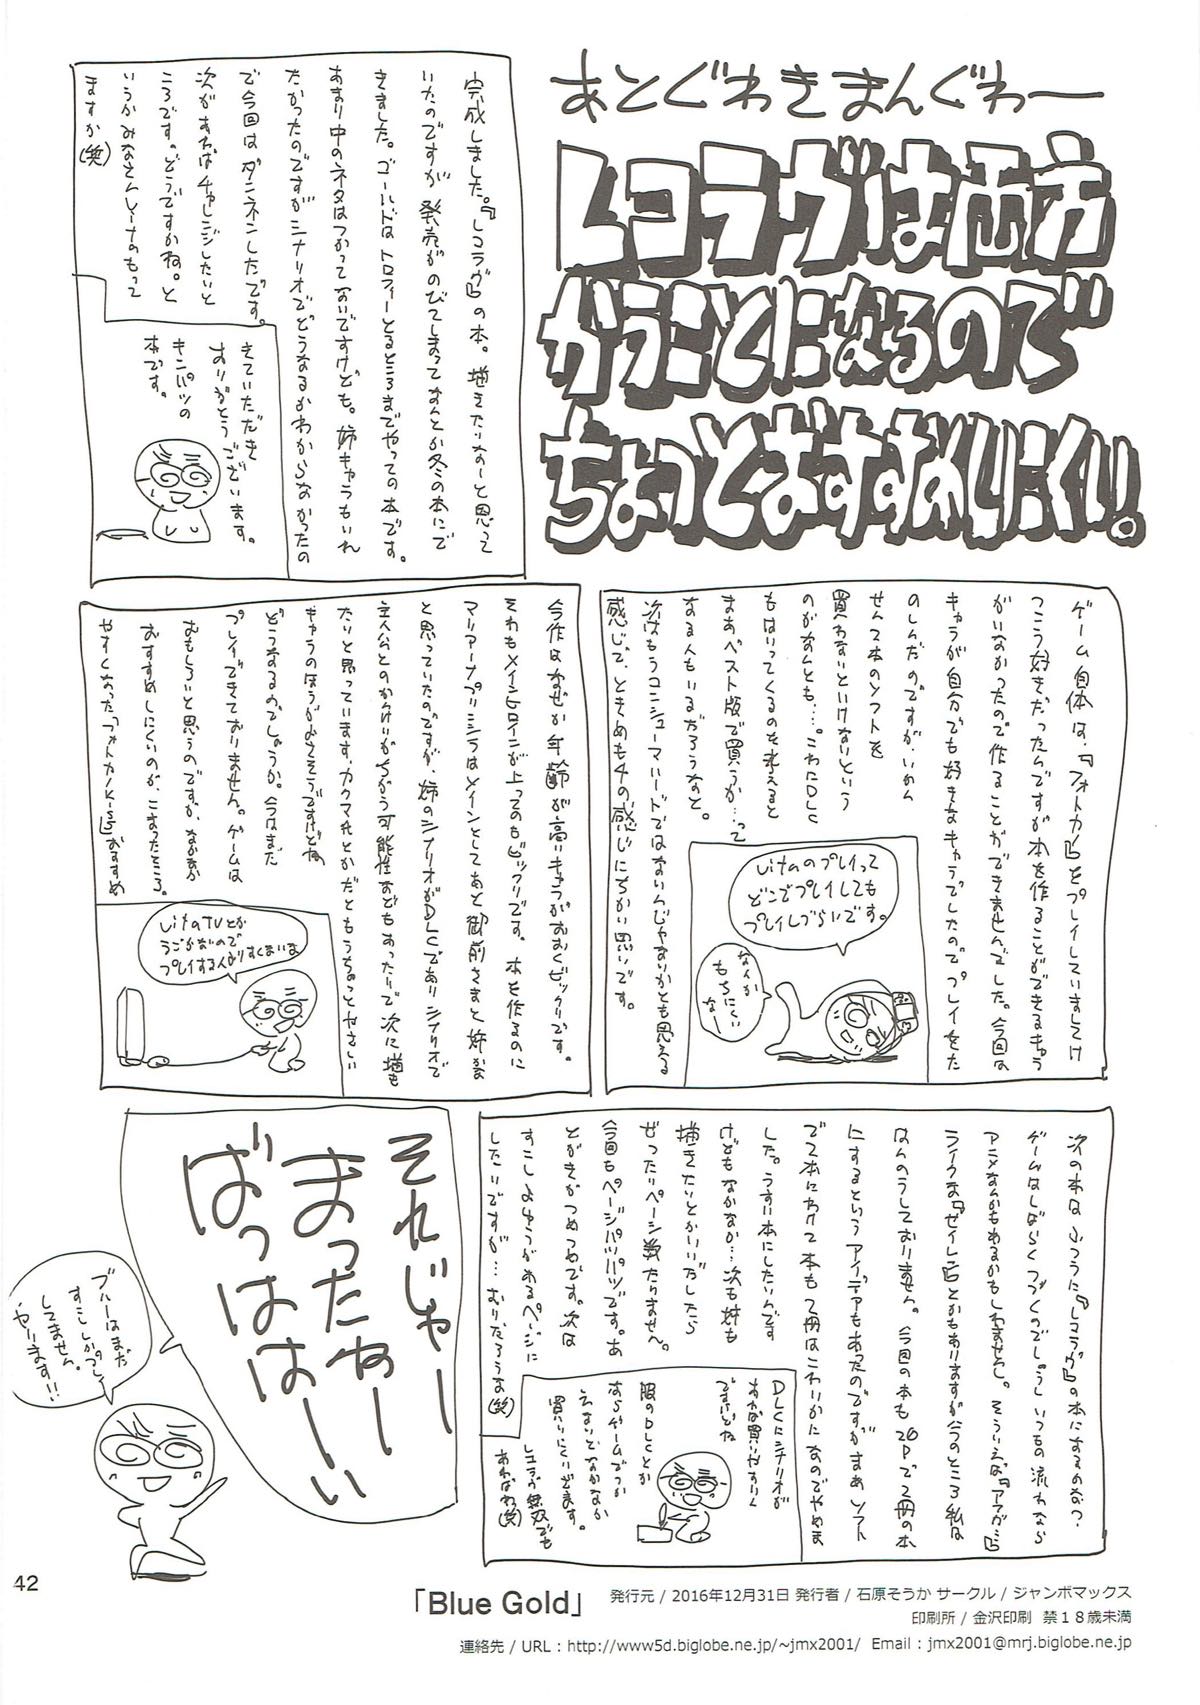 あとぐわきまんぐわー
レコラヴは両方
かうことになるので
ちょっとおすすめしにくい!。
完成しました。『レコラヴ』の本。描きたいなーと思って
いたのですが発売がのびてしまってなんとか冬の本にで
きました。ゴールドはトロフィーとるところまでやっての本です。
あまり中のネタはつかってないですけども。姉キャラもいれ
たかったのですがシナリオでどうなるかわからなかったの
で今回はダンネンしたです。
次があればチャレンジしたいと
ころです。どうですかね。と
いうかみなさんレイナのもって
ますか(笑)
きていただき
ありがとうございます。
キンパツの
本です。
ゲーム自体は、『フォトカノ』をプレイしていましてけ
っこう好きだったんですが本を作ることができるキャラ
がいなかったので作ることができませんでした。今回は
キャラが自分でも好きなキャラでしたのでプレイをた
のしんだのですが、いかん
せん2本のソフトを
買わないといけないという
のがなんとも…。これにDLC
もはいってくるのを考えると
まあベスト版で買うか…って
なる人もいるだろうなと。
次はもうコンシューマハードではないんじゃないかとも思える
感じで、ときめも4の感じにちかい思いです。
vitaのプレイって
どこでプレイしても
プレイしづらいです。
なんか
もちにくい
なー
今作はなぜか年齢が高いキャラがおおくビックリです。
それもメインヒロインが上ってのもビックリです。本を作るのに
マリアーナプリシラはメインとしてあと御前さまと姉かな
と思っていたのですが、姉のシナリオがDLCでありシナリオで
主人公とのかんけいがちがう可能性などもあったりで次に描も
たりと思っています。カクマ先とかだともうちょっとやさしい
キャラのほうがよさそうですけどね
どうなるのでしょうか。今はまだ
プレイできておりません。ゲームは
おもしろいと思うのですが、なかなか
おすすめしにくいのが、こまったところ。
やすくなった『フォトカノKiss』おすすめ
vitaTVとか
うごかないので
プレイする人よりすくないよ
次の本はふつうに『レコラヴ』の本になるのかな?
ゲームはしばらくつづくのでしょうし いつもの流れなら
アニメなんかもあるかもしれません。そういえば『アマガミ』
ライクな『セイレン』とかもありますが今のところ私は
はんのうしておりません。今回の本も20Pで2冊の本
にするというアイデアもあったのですがまあソフト
で2本にわけて本も2冊はこわいかになのでやめま
した。うすい本にしたいんです
けどもなかなか…次も姉も
描きたいとかいいだしたら
ぜったいページ数たりません。
今回もページパツパツです。あ
とがきがつめつめです。次は
すこしよゆうがあるページに
したいですが… むりだろうな(笑)
DLCにシナリオが
あれば買いやすい
ですけどね
服のDLCとか
ならゲームでつか
えないとなかなか
買いにくいです。
レコラヴ無双でも
あればね(笑)
それじゃー
まったねー
ばっはは〜い
ブルーはまだ
すこししかプレイ
してません。
やります!!
42
「Blue Gold」
発行元 / 2016年12月31日 発行者 / 石原そうか サークル / ジャンボマックス
印刷所 / 金沢印刷 禁18歳未満
連絡先 / URL : http://www5d.biglobe.ne.jp/~jmx2001/ Email : jmx2001@mrj.biglobe.ne.jp